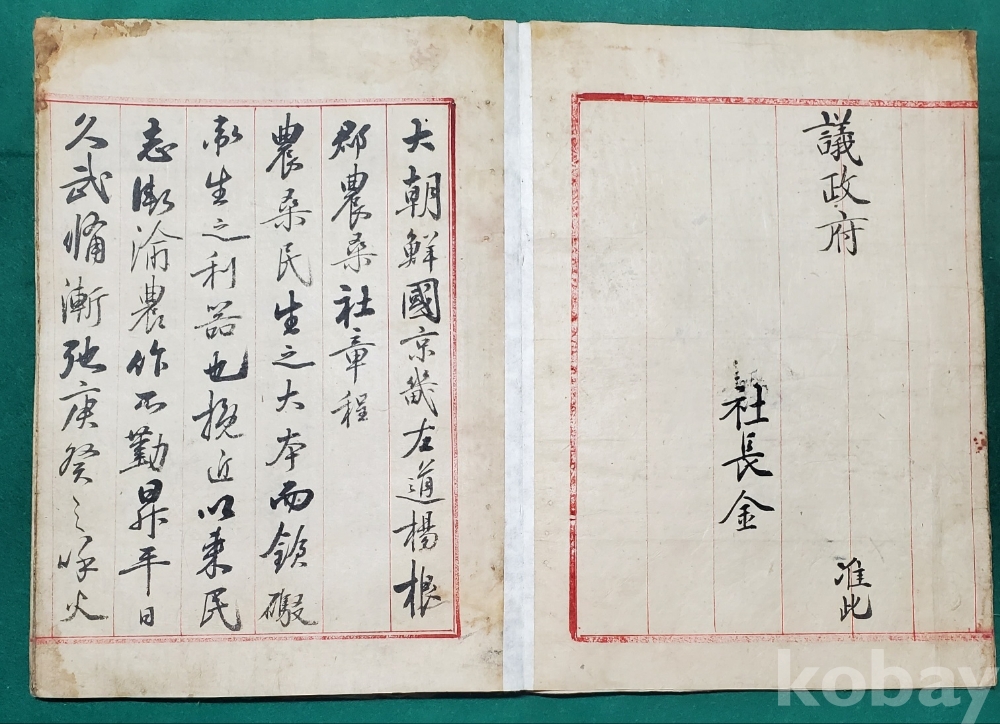 議政府 准此
社長金
大朝鮮國京畿左道楊根
郡農桑社章程
農桑民生之大本而銃礮
衛生之利器也挽近以來民
志漸渝農作不勤昇平日
久武備漸弛庚癸之呼火
kobay